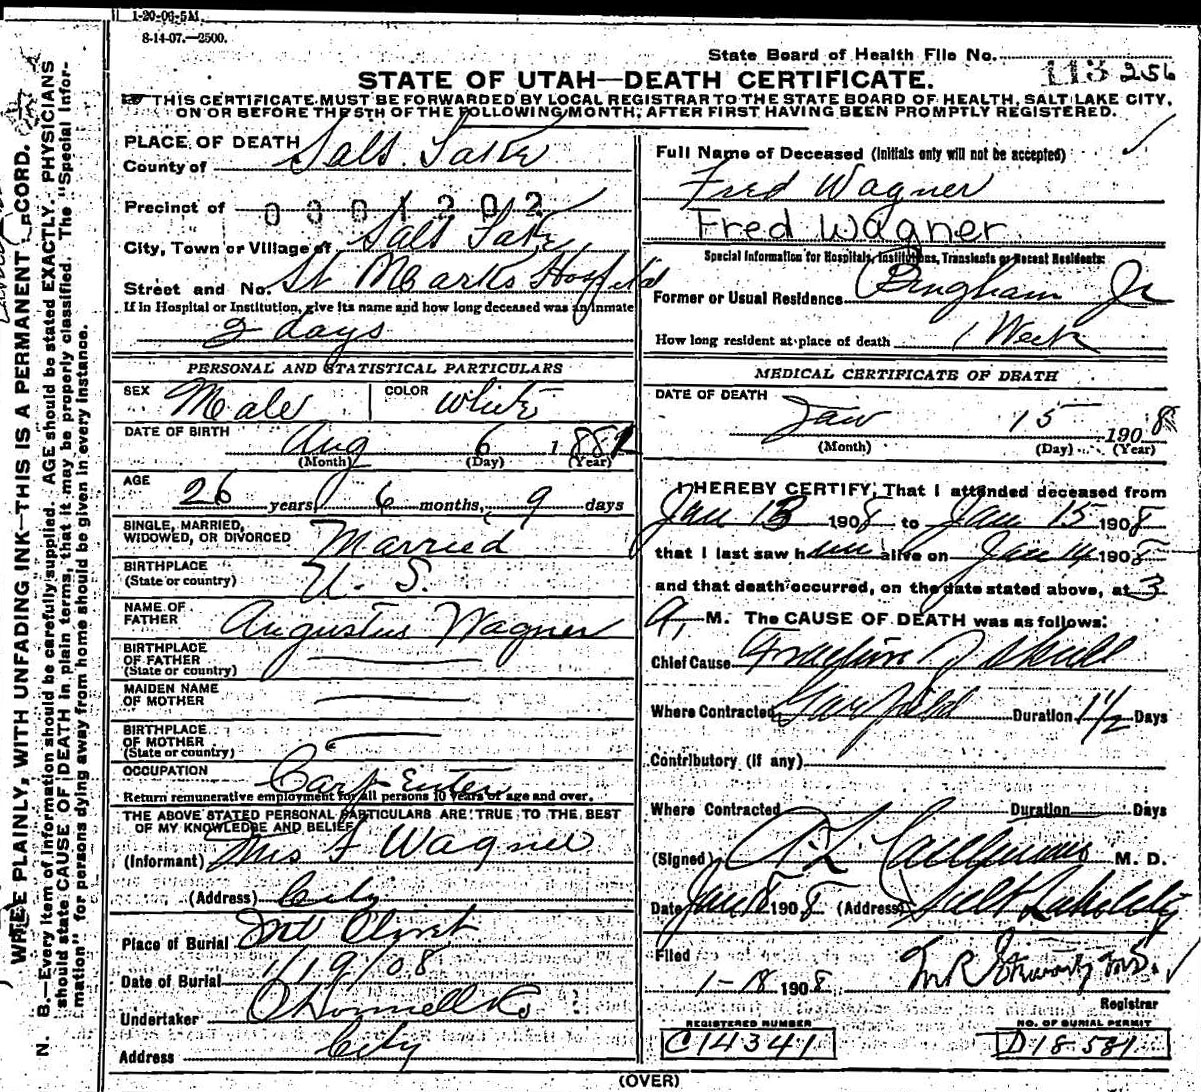 1-20-06-5M.
8-14-07.—2500.
State Board of Health File No. 113 256
STATE OF UTAH—DEATH CERTIFICATE.
THIS CERTIFICATE MUST BE FORWARDED BY LOCAL REGISTRAR TO THE STATE BOARD OF HEALTH, SALT LAKE CITY,
ON OR BEFORE THE 5TH OF THE FOLLOWING MONTH; AFTER FIRST HAVING BEEN PROMPTLY REGISTERED.
PLACE OF DEATH
County of Salt Lake
Precinct of 0301202
City, Town or Village of Salt Lake
Street and No. St Marks Hospital
If in Hospital or Institution, give its name and how long deceased was an inmate
2 days
PERSONAL AND STATISTICAL PARTICULARS
SEX Male COLOR White
DATE OF BIRTH Aug 6 1881
(Month) (Day) (Year)
AGE
26 years, 6 months, 9 days
SINGLE, MARRIED,
WIDOWED, OR DIVORCED Married
BIRTHPLACE
(State or country) U. S.
NAME OF
FATHER Augustus Wagner
BIRTHPLACE
OF FATHER
(State or country)
MAIDEN NAME
OF MOTHER
BIRTHPLACE
OF MOTHER
(State or country)
OCCUPATION Carpenter
Return remunerative employment for all persons 10 years of age and over.
THE ABOVE STATED PERSONAL PARTICULARS ARE TRUE TO THE BEST
OF MY KNOWLEDGE AND BELIEF
(Informant) Mrs F Wagner
(Address) City
Place of Burial Mt Olivet
Date of Burial 1/19/08
Undertaker O'Donnell & Co
Address City
Full Name of Deceased (Initials only will not be accepted)
Fred Wagner
Fred Wagner
Special Information for Hospitals, Institutions, Transients or Recent Residents:
Former or Usual Residence Bingham Jc
How long resident at place of death 1 Week
MEDICAL CERTIFICATE OF DEATH
DATE OF DEATH
Jan 15 1908
(Month) (Day) (Year)
I HEREBY CERTIFY, That I attended deceased from
Jan 13 1908 to Jan 15 1908
that I last saw him alive on Jan 14 1908
and that death occurred, on the date stated above, at 3
A. M. The CAUSE OF DEATH was as follows:
Chief Cause Fracture of Skull
Where Contracted Garfield Duration 1 1/2 Days
Contributory (if any)
Where Contracted Duration Days
(Signed) M. D.
Date Jan 18 1908 (Address) Salt Lake City
Filed
1-18 1908
Registrar
REGISTERED NUMBER
C14341
NO. OF BURIAL PERMIT
D18581
(OVER)
WRITE PLAINLY, WITH UNFADING INK—THIS IS A PERMANENT RECORD.
N. B.—Every item of information should be carefully supplied. AGE should be stated EXACTLY. PHYSICIANS
should state CAUSE OF DEATH in plain terms, that it may be properly classified. The "Special Infor-
mation" for persons dying away from home should be given in every instance.